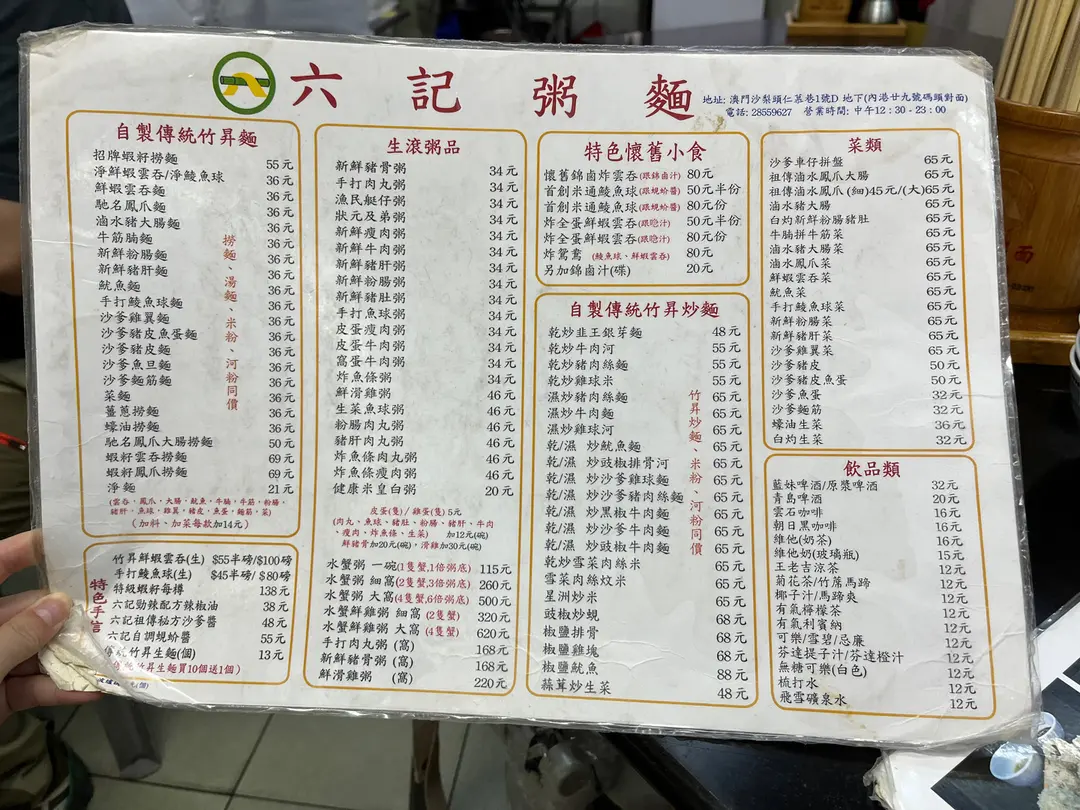 六記粥麵
地址: 澳門沙梨頭仁慕巷1號D 地下(內港廿九號碼頭對面)
電話: 28559627 營業時間: 中午12:30 - 23:00
自製傳統竹昇麵
招牌蝦籽撈麵 55元
淨鮮蝦雲吞/淨鯪魚球 36元
鮮蝦雲吞麵 36元
馳名鳳爪麵 36元
滷水豬大腸麵 36元
牛筋腩麵 36元
新鮮粉腸麵 36元
新鮮豬肝麵 36元
魷魚麵 36元
手打鯪魚球麵 36元
沙爹雞翼麵 36元
沙爹豬皮魚蛋麵 36元
沙爹豬皮麵 36元
沙爹魚旦麵 36元
沙爹麵筋麵 36元
菜麵 36元
薑蔥撈麵 36元
蠔油撈麵 36元
馳名鳳爪大腸撈麵 50元
蝦籽雲吞撈麵 69元
蝦籽鳳爪撈麵 69元
淨麵 21元
撈麵、湯麵、米粉、河粉同價
(雲吞、鳳爪、大腸、魷魚、牛腩、牛筋、粉腸、
豬肝、魚球、雞翼、豬皮、魚蛋、麵筋、菜)
(加料、加菜每款加14元)
特色手信
竹昇鮮蝦雲吞(生) $55半磅/$100磅
手打鯪魚球(生) $45半磅/$80磅
特級蝦籽每樽 138元
六記勁辣配方辣椒油 38元
六記祖傳秘方沙爹醬 48元
六記自調蜆蚧醬 55元
傳統竹昇生麵(個) 13元
(傳統竹昇生麵買10個送1個)
生滾粥品
新鮮豬骨粥 34元
手打肉丸粥 34元
漁民艇仔粥 34元
狀元及弟粥 34元
新鮮瘦肉粥 34元
新鮮牛肉粥 34元
新鮮豬肝粥 34元
新鮮粉腸粥 34元
新鮮豬肚粥 34元
手打魚球粥 34元
皮蛋瘦肉粥 34元
皮蛋牛肉粥 34元
窩蛋牛肉粥 34元
炸魚條粥 34元
鮮滑雞粥 46元
生菜魚球粥 46元
粉腸肉丸粥 46元
豬肝肉丸粥 46元
炸魚條肉丸粥 46元
炸魚條瘦肉粥 46元
健康米皇白粥 20元
皮蛋(隻)/雞蛋(隻) 5元
(肉丸、魚球、豬肚、粉腸、豬肝、牛肉
、瘦肉、炸魚條、生菜) 加12元(碗)
鮮豬骨加20元(碗)，滑雞加30元(碗)
水蟹粥 一碗(1隻蟹,1倍粥底) 115元
水蟹粥 細窩(2隻蟹,3倍粥底) 260元
水蟹粥 大窩(4隻蟹,6倍粥底) 500元
水蟹鮮雞粥 細窩(2隻蟹) 320元
水蟹鮮雞粥 大窩(4隻蟹) 620元
手打肉丸粥 (窩) 168元
新鮮豬骨粥 (窩) 168元
鮮滑雞粥 (窩) 220元
特色懷舊小食
懷舊錦鹵炸雲吞(跟錦鹵汁) 80元
首創米通鯪魚球(跟蜆蚧醬) 50元半份
首創米通鯪魚球(跟蜆蚧醬) 80元份
炸全蛋鮮蝦雲吞(跟喼汁) 50元半份
炸全蛋鮮蝦雲吞(跟喼汁) 80元份
炸鴛鴦 (鯪魚球、鮮蝦雲吞) 80元
另加錦鹵汁(碟) 20元
自製傳統竹昇炒麵
乾炒韭王銀芽麵 48元
乾炒牛肉河 55元
乾炒豬肉絲麵 55元
乾炒雞球米 55元
濕炒豬肉絲麵 65元
濕炒牛肉麵 65元
濕炒雞球河 65元
乾/濕 炒魷魚麵 65元
乾/濕 炒豉椒排骨河 65元
乾/濕 炒沙爹雞球麵 65元
乾/濕 炒沙爹豬肉絲麵 65元
乾/濕 炒黑椒牛肉麵 65元
乾/濕 炒沙爹牛肉麵 65元
乾/濕 炒豉椒牛肉麵 65元
乾炒雪菜肉絲米 65元
雪菜肉絲炆米 65元
星洲炒米 65元
豉椒炒蜆 68元
椒鹽排骨 68元
椒鹽雞塊 68元
椒鹽魷魚 88元
蒜茸炒生菜 48元
竹昇炒麵、米粉、河粉同價
菜類
沙爹車仔拼盤 65元
祖傳滷水鳳爪大腸 65元
祖傳滷水鳳爪 (細)45元/(大)65元
滷水豬大腸 65元
白灼新鮮粉腸豬肚 65元
牛腩拼牛筋菜 65元
滷水豬大腸菜 65元
滷水鳳爪菜 65元
鮮蝦雲吞菜 65元
魷魚菜 65元
手打鯪魚球菜 65元
新鮮粉腸菜 65元
新鮮豬肝菜 65元
沙爹雞翼菜 65元
沙爹豬皮 50元
沙爹豬皮魚蛋 50元
沙爹魚蛋 32元
沙爹麵筋 32元
蠔油生菜 36元
白灼生菜 32元
飲品類
藍妹啤酒/原漿啤酒 32元
青島啤酒 20元
雲石咖啡 16元
朝日黑咖啡 16元
維他(奶茶) 16元
維他奶(玻璃瓶) 15元
王老吉涼茶 12元
菊花茶/竹蔗馬蹄 12元
椰子汁/馬蹄爽 12元
有氣檸檬茶 12元
有氣利賓納 12元
可樂/雪碧/忌廉 12元
芬達提子汁/芬達橙汁 12元
無糖可樂(白色) 12元
梳打水 12元
飛雪礦泉水 12元